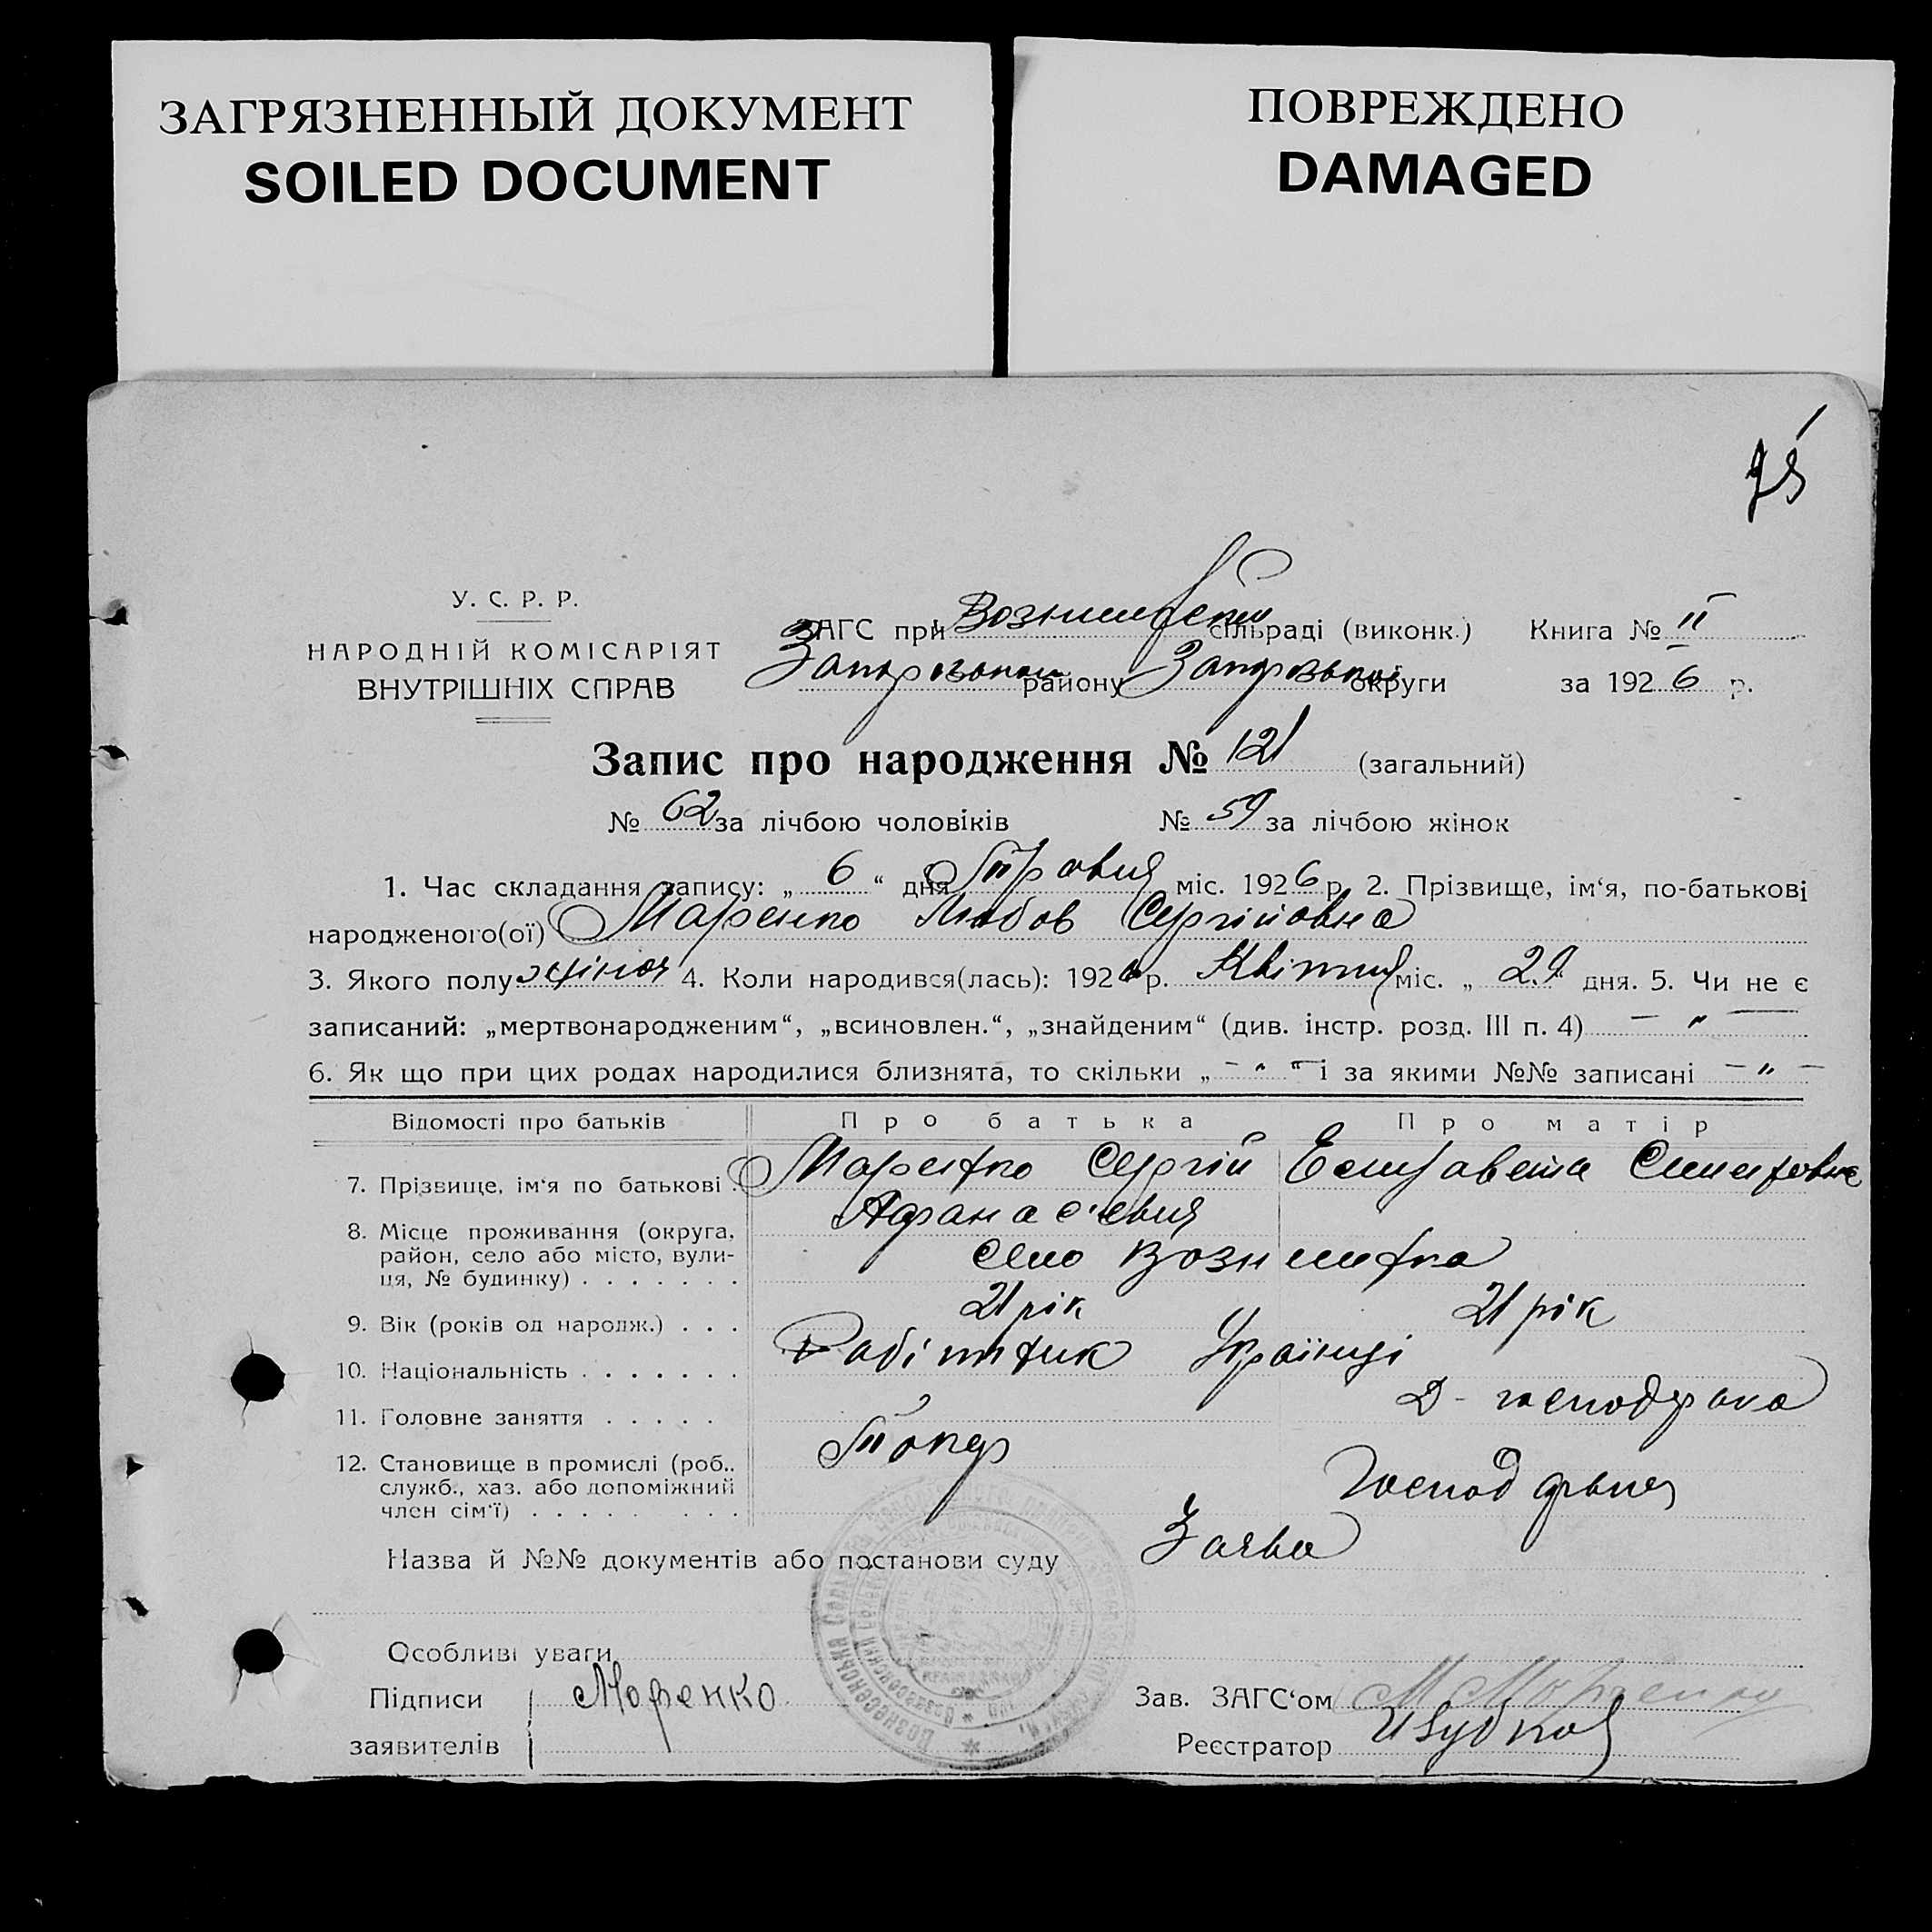 ЗАГРЯЗНЕННЫЙ ДОКУМЕНТ
SOILED DOCUMENT
ПОВРЕЖДЕНО
DAMAGED
У. С. Р. Р.
НАРОДНІЙ КОМІСАРІЯТ
ВНУТРІШНІХ СПРАВ
ЗАГС при сільраді (виконк.) Книга № II
району округи за 1926 р.
Запис про народження № 121 (загальний)
№ 62 за лічбою чоловіків № 59 за лічбою жінок
1. Час складання запису: „ 6 “ дня Травня міс. 1926 р. 2. Прізвище, ім‘я, по-батькові
народженого(ої) Маренко Любов Сергіївна
3. Якого полу жіноч 4. Коли народився(лась): 1926 р. Квітня міс. „ 29 “ дня. 5. Чи не є
записаний: „мертвонародженим“, „всиновлен.“, „знайденим“ (див. інстр. розд. III п. 4) — „ —
6. Як що при цих родах народилися близнята, то скільки „ – „ – “ і за якими №№ записані – „ –
Відомості про батьків Про батька Про матір
7. Прізвище, ім‘я по батькові Маренко Сергій Єлизавета
Афанасієвич
8. Місце проживання (округа,
район, село або місто, вули-
ця, № будинку) . . . . . . . село Вознесенка
9. Вік (років од народж.) . . . 21 рік 21 рік
10. Національність . . . . . . . Робітник Українці
11. Головне заняття . . . . . Д-
12. Становище в промислі (роб.,
служб., хаз. або допоміжний
член сім‘ї) . . . . . . . . . Токар
Назва й №№ документів або постанови суду Заява
Особливі уваги
Підписи Маренко Зав. ЗАГС‘ом
заявителів Реєстратор